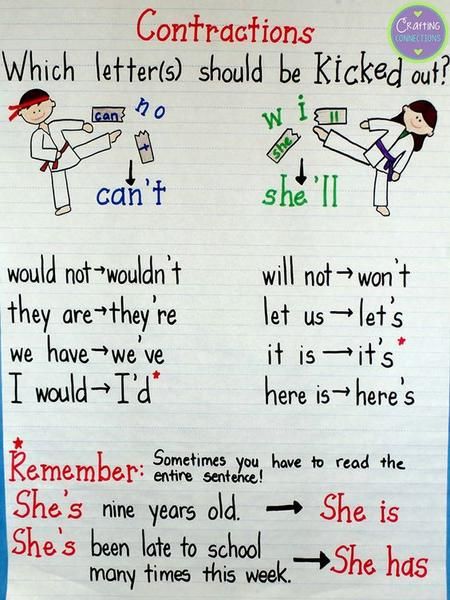 Crafting
CONNECTIONS
Contractions
Which letter(s) should be Kicked out?
can no t
can't
w i ll
she
she'll
would not→wouldn't
they are→they're
we have→we've
I would→I'd*
will not→won't
let us→let's
it is→it's*
here is→here's
*
Remember: Sometimes you have to read the
entire sentence!
She's nine years old. → She is
She's been late to school
many times this week. → She has